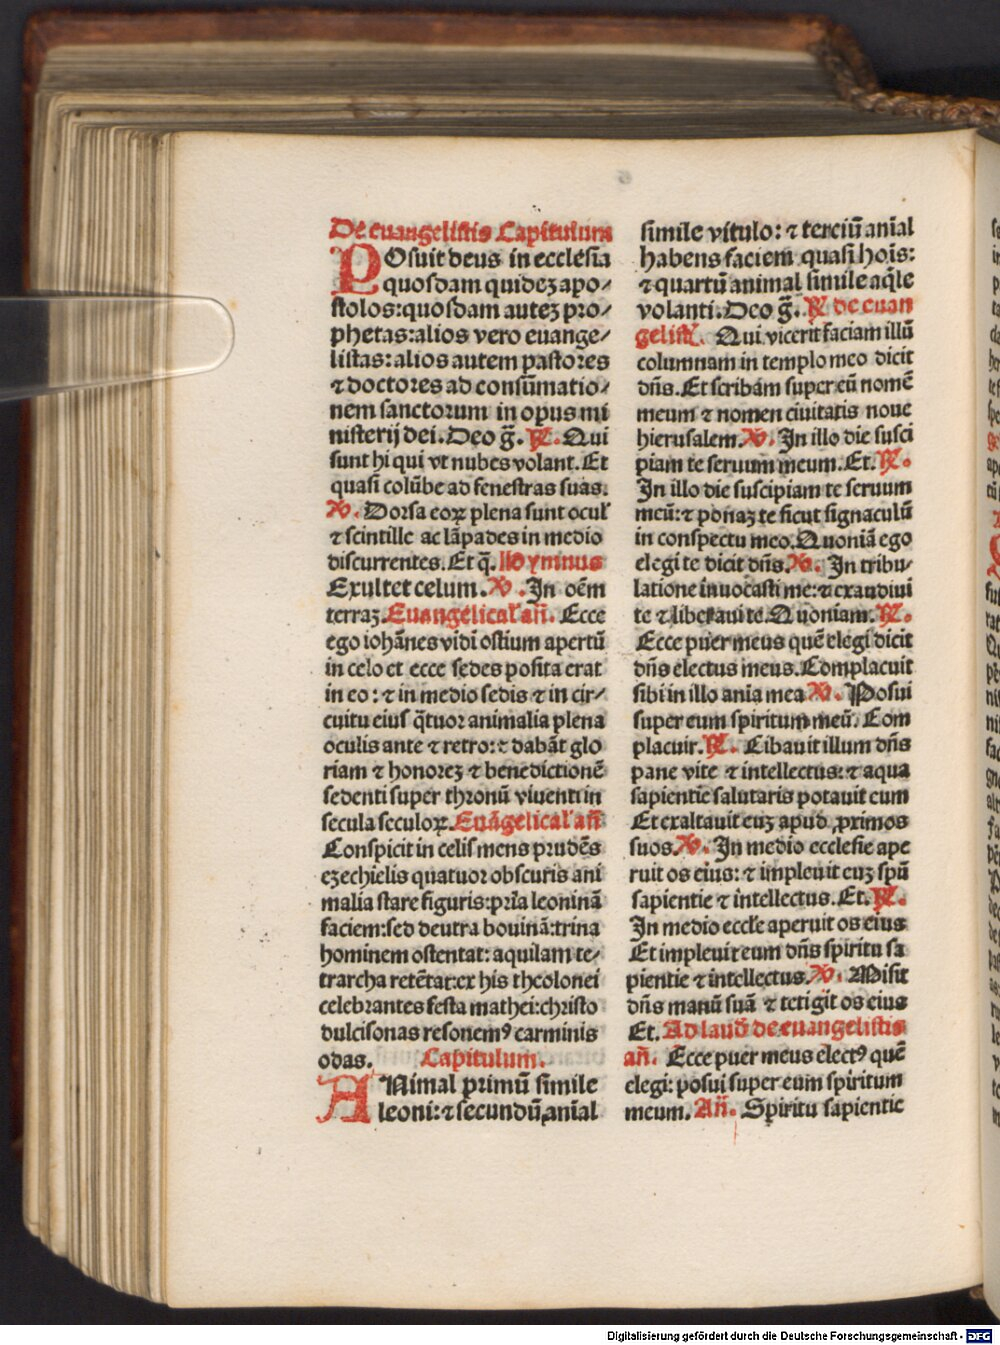 De euangelistis Capitulum
POsuit deus in ecclesia
quosdam quidez apo⸗
stolos:quosdam autez pro⸗
phetas:alios vero euange⸗
listas:alios autem pastores
⁊ doctores ad consūmatio⸗
nem sanctorum in opus mi
nisterij dei. Deo g̃. ℟. Qui
sunt hi qui vt nubes volant. Et
quasi colūbe ad fenestras suas.
℣. Dorsa eoꝝ plena sunt ocul̕
⁊ scintille ac lāpades in medio
discurrentes. Et q̄. Hymnus
Exultet celum. ℣. In oēm
terraz. Euangelical̕ añ. Ecce
ego iohānes vidi ostium apertū
in celo et ecce sedes posita erat
in eo: ⁊ in medio sedis ⁊ in cir⸗
cuitu eius q̄tuor animalia plena
oculis ante ⁊ retro: ⁊ dabāt glo
riam ⁊ honorez ⁊ benedictionē
sedenti super thronū viuenti in
secula seculoꝝ. Euāgelical̕ añ
Conspicit in celis mens prudēs
ezechielis quatuor obscuris ani
malia stare figuris:pria leoninā
faciem:sed deutra bouinā:trina
hominem ostentat: aquilam te⸗
trarcha retētat:ex his theolonei
celebrantes festa mathei:christo
dulcisonas resonemꝰ carminis
odas. Capitulum.
ANimal primū simile
leoni: ⁊ secundū anial
simile vitulo: ⁊ terciū anial
habens faciem quasi hois:
⁊ quartū animal simile aq̄le
volanti. Deo g̃. ℟ de euan
gelist̕. Qui vicerit faciam illū
columnam in templo meo dicit
dñs. Et scribam super eū nomē
meum ⁊ nomen ciuitatis noue
hierusalem. ℣. In illo die susci
piam te seruum meum. Et. ℟.
In illo die suscipiam te seruum
meū: ⁊ ponaz te sicut signaculū
in conspectu meo. Quoniā ego
elegi te dicit dñs. ℣. In tribu⸗
latione inuocasti me: ⁊ exaudiui
te ⁊ liberaui te. Quoniam. ℟.
Ecce puer meus quē elegi dicit
dñs electus meus. Complacuit
sibi in illo ania mea ℣. Posui
super eum spiritum meū. Com
placuit. ℟. Cibauit illum dñs
pane vite ⁊ intellectus: ⁊ aqua
sapientie salutaris potauit eum
Et exaltauit euz apud ꝓximos
suos. ℣. In medio ecclesie ape
ruit os eius: ⁊ impleuit euz spū
sapientie ⁊ intellectus. Et. ℟.
In medio eccle aperuit os eius
Et impleuit eum dñs spiritu sa
pientie ⁊ intellectus. ℣. Misit
dñs manū suā ⁊ tetigit os eius
Et. Ad laud̕ de euangelistis
añ. Ecce puer meus electꝰ quē
elegi: posui super eum spiritum
meum. Añ. Spiritu sapientie
Digitalisierung gefördert durch die Deutsche Forschungsgemeinschaft - DFG